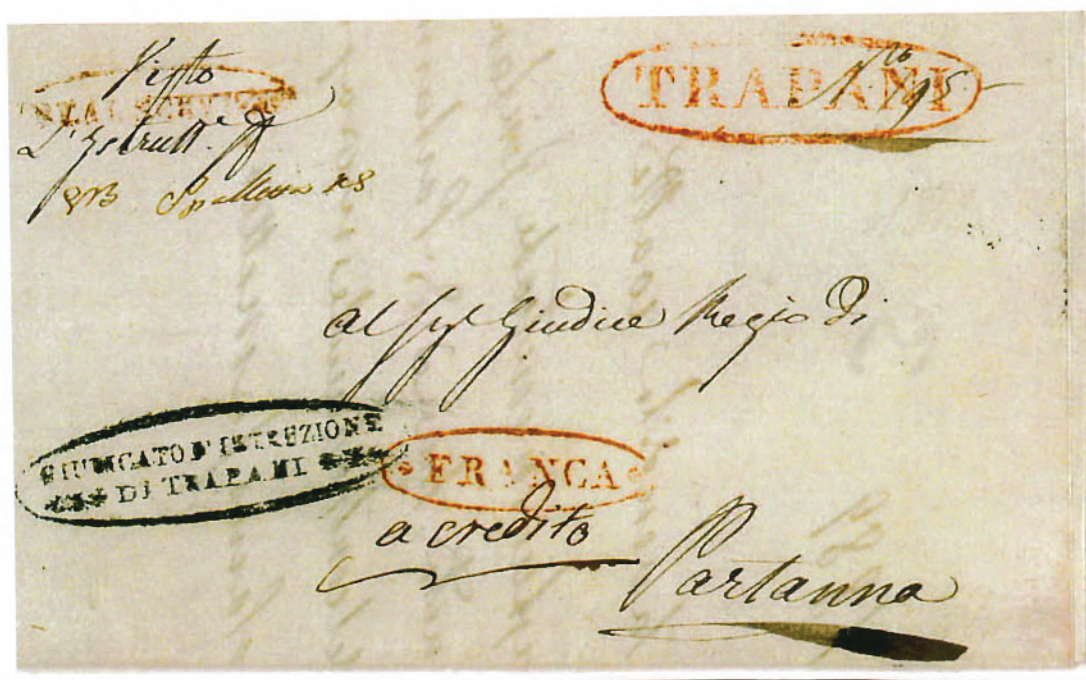 Visto
REAL SERVIZIO
L'Istrutt.e
TRAPANI
N.to 195
al Sig.r Giudice Regio di
GIUDICATO D'ISTRUZIONE
DI TRAPANI
FRANCA
a credito
Partanna